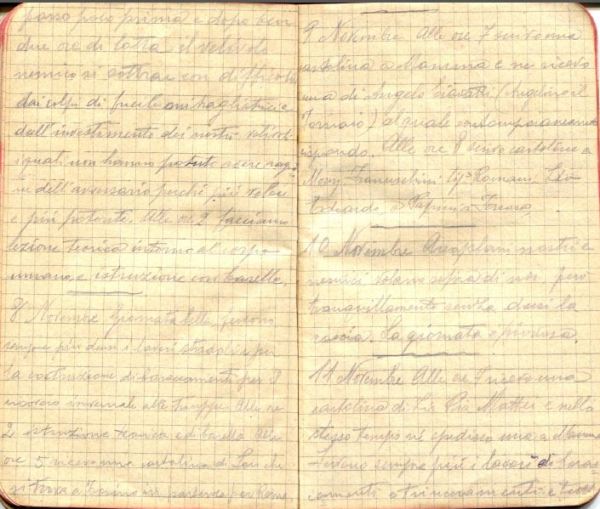 passo poco prima e dopo ben
due ore di lotta il velivolo
nemico si sottrae con difficoltà
dai colpi di fucile mitragliatrice
dall'investimento dei nostri velivoli
i quali non hanno potuto avere ragio
ne dell'avversario perchè più veloce
e più potente. Alle ore 2 facciamo
lezione teorica intorno al corpo
umano, e istruzione con barella.
8 Novembre Giornata bella, fervono
sempre più duri i lavori stradali e per
la costruzione di baraccamenti per il
ricovero invernale alle Truppe. Alle ore
2 istruzione teorica e di barella. Alle
ore 5 ricevo una cartolina di che
si trova a Torino in partenza per Roma.
9 Novembre Alle ore 7 scrivo una
cartolina a Mamma e ne ricevo
una di Angelo (Angelino il
Fornaio) al quale contemporaneamente
rispondo. Alle ore 8 scrivo cartoline a
Franceschini Romani,
Edoardo, e Papini
10 Novembre Aeroplani nostri e
nemici volano sopra di noi, però
tranquillamente senza darsi la
caccia. La giornata è piovosa
11 Novembre Alle ore 7 ricevo una
cartolina di Pia Mattei e nello
stesso tempo ne spedisco una a Mamma
Fervono sempre più i lavori di barac
camenti e trinceramenti e